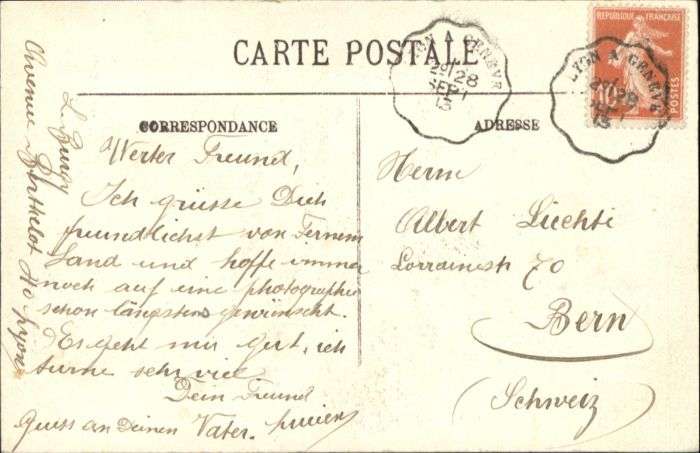 CARTE POSTALE
CORRESPONDANCE
ADRESSE
REPUBLIQUE FRANÇAISE
POSTES
10
LYON A GENEVE
28
SEPT
13
LYON A GENEVE
28
13
Werter Freund,
Ich grüsse Dich
freundlichst von Fernem
Land und hoffe immer
noch auf eine photographie
schon längstens gewünscht.
Es geht mir gut, ich
turne sehr viel
Dein Freund
Gruss an Deinen Vater.
Avenue Berthelot 40 Lyon
Herrn
Albert Liechti
Lorrainestr 70
Bern
(Schweiz)